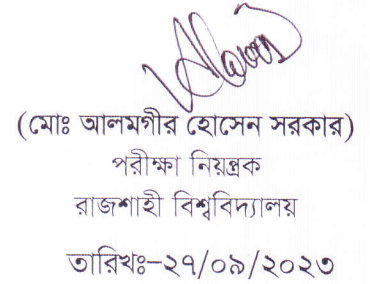 (মোঃ আলমগীর হোসেন সরকার)
পরীক্ষা নিয়ন্ত্রক
রাজশাহী বিশ্ববিদ্যালয়
তারিখঃ-২৭/০৯/২০২৩